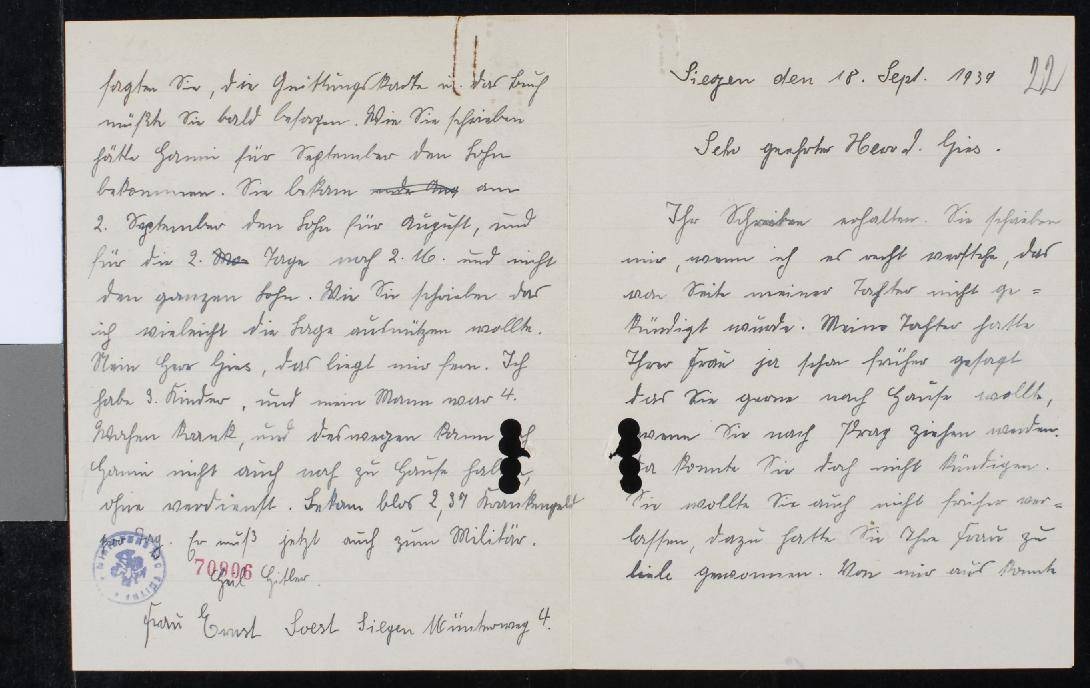 Siegen den 18. Sept. 1939
22
Sehr geehrter Herr J. Gies.
Ihr Schreiben erhalten. Sie schreiben
mir, wenn ich es recht verstehe, das
von Seite meiner Tochter nicht ge=
kündigt wurde. Meine Tochter hatte
Ihrer Frau ja schon früher gesagt
das Sie gerne nach Hause wollte,
wenn Sie nach Prag ziehen werden.
Da konnte Sie doch nicht kündigen.
Sie wollte Sie auch nicht früher ver=
lassen, dazu hatte Sie Ihre Frau zu
liebe gewonnen. Von mir aus konnte
sagten Sie, die Quittungskarte u. das Buch
müßte Sie bald besorgen. Wie Sie schrieben
hätte Hanni für September den Lohn
bekommen. Sie bekam am
2. September den Lohn für August, und
für die 2. Tage noch 2.16. und nicht
den ganzen Lohn. Wie Sie schrieben das
ich vieleicht die Lage ausnützen wollte.
Nein Herr Gies, das liegt mir fern. Ich
habe 3. Kinder, und mein Mann war 4.
Wochen krank, und deswegen kann ich
Hanni nicht auch noch zu Hause halten,
ohne verdienst. Bekam blos 2,37 Krankengeld
p. Tag. Er muß jetzt auch zum Militär.
70806
Heil Hitler.
Frau Ernst Soest Siegen Münterweg 4.